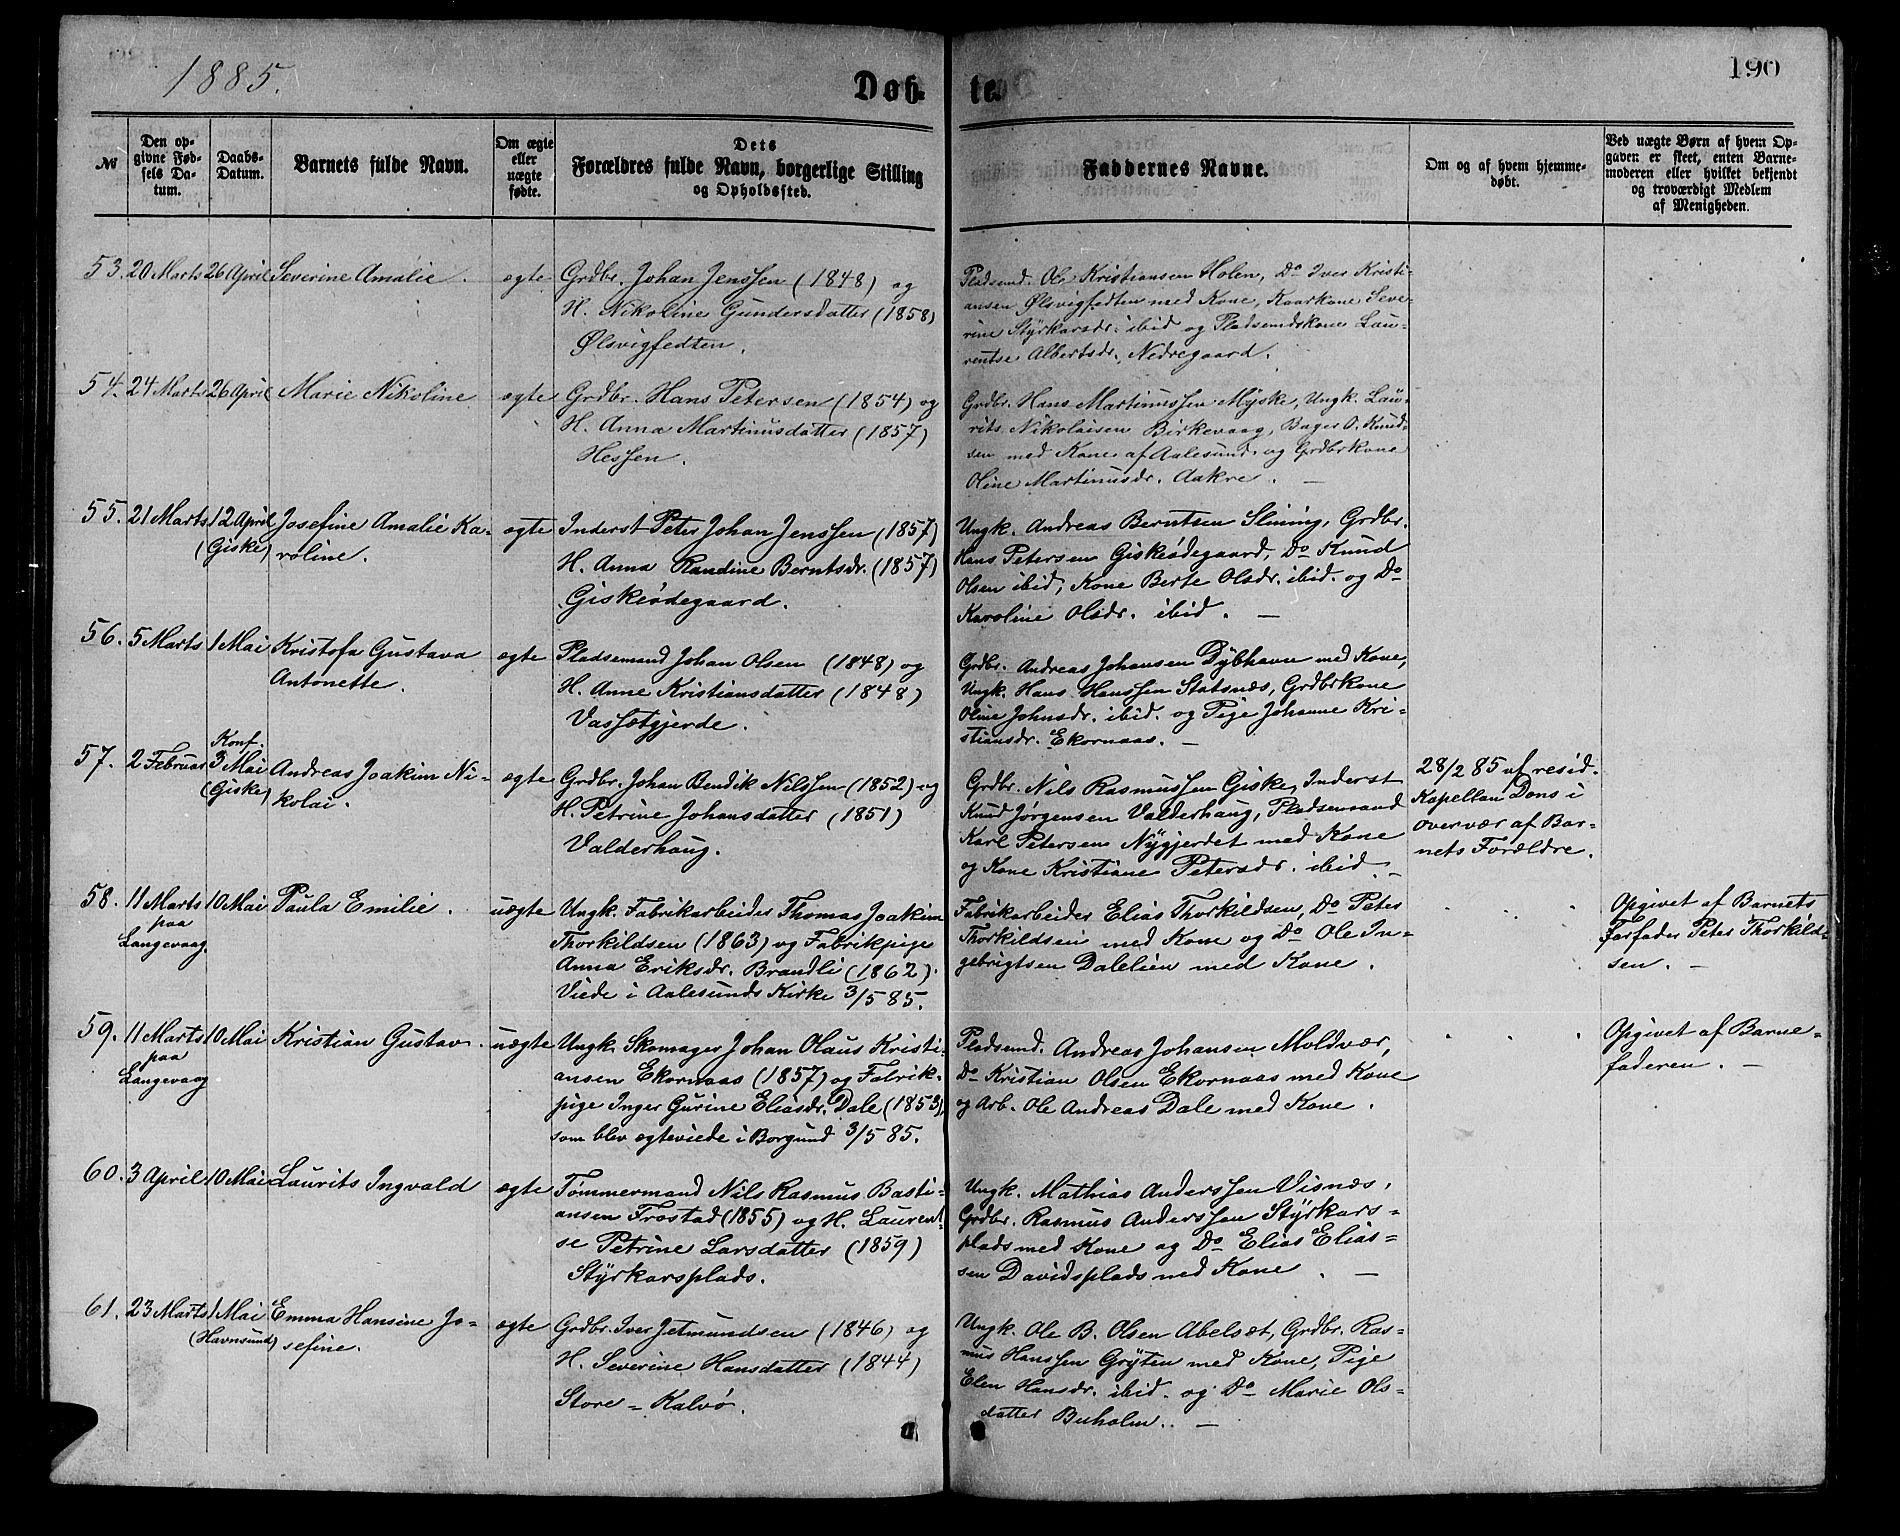 1885.
Døb-
te.
190
№
Den op-
givne Fød-
sels Da-
tum.
Daabs-
Datum.
Barnets fulde Navn.
Om ægte
eller
uægte
fødte.
Dets
Forældres fulde Navn, borgerlige Stilling
og Opholdssted.
Faddernes Navne.
Om og af hvem hjemme-
døbt.
Ved uægte Børn af hvem Op-
gaven er skeet, enten Barne-
moderen eller hvilket bekjendt
og troværdigt Medlem
af Menigheden.
53. 20 Marts 26 April Severine Amalie. ægte Grdbr. Johan Jenssen (1848) og
H. Nikoline Gundersdatter (1858)
Ølsvigfedten.
Pladsmd. Ole Kristiansen Holen, Do Iver Kristi-
ansen Ølsvigfedten med Kone, Kaarkone Seve-
rine Styrkarsdr. ibid og Pladsmdskone Lau-
rentse Albertsdr. Nedregaard.
54. 24 Marts 26 April Marie Nikoline ægte Grdbr. Hans Petersen (1854) og
H. Anna Martinusdatter (1857)
Hessen.
Grdbr. Hans Martinussen Myske, Ungk. Lau-
rits Nikolaisen Birkevaag, Bager O. Knud-
sen med Kone af Aalesund og Grdbrkone
Oline Martinusdr. Aakre. —
55. 21 Marts 12 April Josefine Amalie Ka- ægte Inderst Peter Johan Jenssen (1857)
(Giske) roline. H. Anna Randine Berntsdr. (1857)
Giskeødegaard.
Ungk. Andreas Berntsen Slining, Grdbr.
Hans Petersen Giskeødegaard, Do Knud
Olsen ibid, Kone Berte Olsdr. ibid. og Do
Karoline Olsdr. ibid. —
56. 5 Marts 1 Mai Kristofa Gustava ægte Pladsemand Johan Olsen (1848) og
Antonette. H. Anne Kristiansdatter (1848)
Vassætgjerde.
Grdbr. Andreas Johansen Dybhavn med Kone,
Ungk. Hans Hanssen Slatsnæs, Grdbrkone
Oline Johnsdr. ibid. og Pige Johanne Kri-
stiansdr. Ekornaas. —
Konf.
57. 2 Februar 3 Mai Andreas Joakim Ni- ægte Grdbr. Johan Bendik Nilssen (1852) og
(Giske) kolai. H. Petrine Johansdatter (1851)
Valderhaug.
Grdbr. Nils Rasmussen Giske, Inderst
Knud Jørgensen Valderhaug, Pladsemand
Karl Petersen Nygjerdet med Kone
og Kone Kristiane Petersdr. ibid. —
28/2 85 af resid.
Kapellan Dons i
overvær af Bar-
nets Forældre.
58. 11 Marts 10 Mai Paula Emilie. uægte Ungk. Fabrikarbeider Thomas Joakim
paa Thorkildsen (1863) og Fabrikpige
Langevaag. Anna Eriksdr. Brandli (1862).
Viede i Aalesunds Kirke 3/5 85.
Fabrikarbeider Elias Thorkildsen, Do Peter
Thorkildsen med Kone og Do Ole In-
gebrigtsen Dalelien med Kone.
Opgivet af Barnets
Farfader Peter Thorkild-
sen. —
59. 11 Marts 10 Mai Kristian Gustav. uægte Ungk. Skomager Johan Olaus Kristi-
paa ansen Ekornaas (1857) og Fabrik-
Langevaag pige Inger Gurine Eliasdr. Dale (1853),
som blev ægteviede i Borgund 3/5 85.
Pladsmd. Andreas Johansen Moldvær,
Do Kristian Olsen Ekornaas med Kone
og Arb. Ole Andreas Dale med Kone.
Opgivet af Barne-
faderen. —
60. 3 April 10 Mai Laurits Ingvald ægte Tømmermand Nils Rasmus Basti-
ansen Frostad (1855) og H. Laurent-
se Petrine Larsdatter (1859)
Styrkarsplads.
Ungk. Mathias Anderssen Visnæs,
Grdbr. Rasmus Anderssen Styrkars-
plads med Kone og Do Elias Elias-
sen Davidsplads med Kone. —
61. 23 Marts 1 Mai Emma Hansine Jo- ægte Grdbr. Iver Jetmundsen (1846) og
(Havnsund) sefine. H. Severine Hansdatter (1844)
Store-Kalvø.
Ungk. Ole B. Olsen Abelsæt, Grdbr. Ras-
mus Hanssen Gryten med Kone, Pige
Elen Hansdr. ibid. og Do Marie Ols-
datter Buholm. —